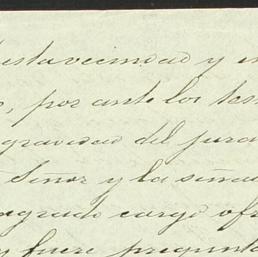 esta vecindad y e
, por ante los tes
gravedad del jura
Señor y la seña
agrado cargo ofr
y fuere pregunta